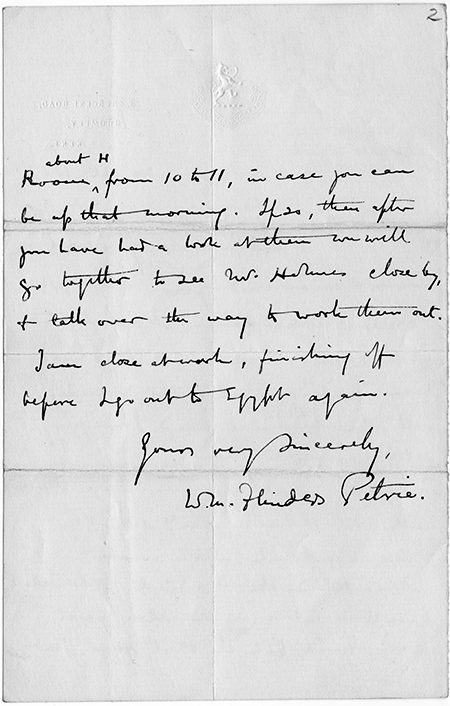 2
CRESCENT ROAD,
BROMLEY,
KENT.
about H
Rooms, from 10 to 11, in case you can
be up that morning. If so, then after
you have had a look at them we will
go together to see Mr. Holmes close by,
& talk over the way to work them out.
I am close at work, finishing off
before I go out to Egypt again.
Yours very sincerely,
W.m. Flinders Petrie.